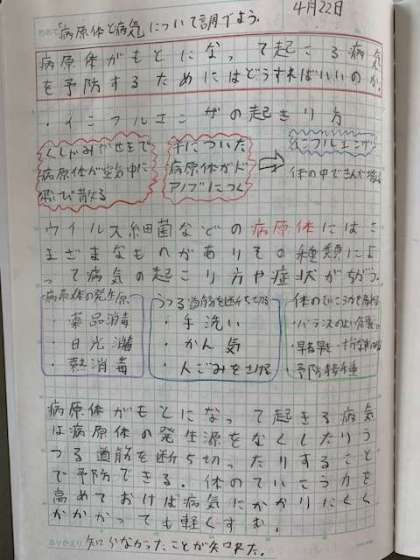 4月22日
めあて 病原体と病気について調べよう。
病原体がもとになって起こる病気
を予防するためにはどうすればいいのか。
・インフルエンザの起き り方
くしゃみやせきで
病原体が空気中に
飛び散る
手についた
病原体がド
アノブにつく
インフルエンザ
体の中で
ウイルス細菌などの病原体にはさ
まざまなものがありその種類によ
って病気の起こり方や症状がちがう。
病原体の発生源
・薬品消毒
・日光消毒
・熱消毒
うつる道筋を断ち切る
・手洗い
・かん気
・人ごみをさける
体のていこう力を高める
・バランスのよい食事
・早寝早起き
予防接種
病原体がもとになって起きる病気
は病原体の発生源をなくしたりう
つる道筋を断ち切ったりすること
で予防できる。体のていこう力を
高めておけば病気にかかりにくく
かかかっても軽くすむ。
ふりかえり 知らなかったことが知れた。